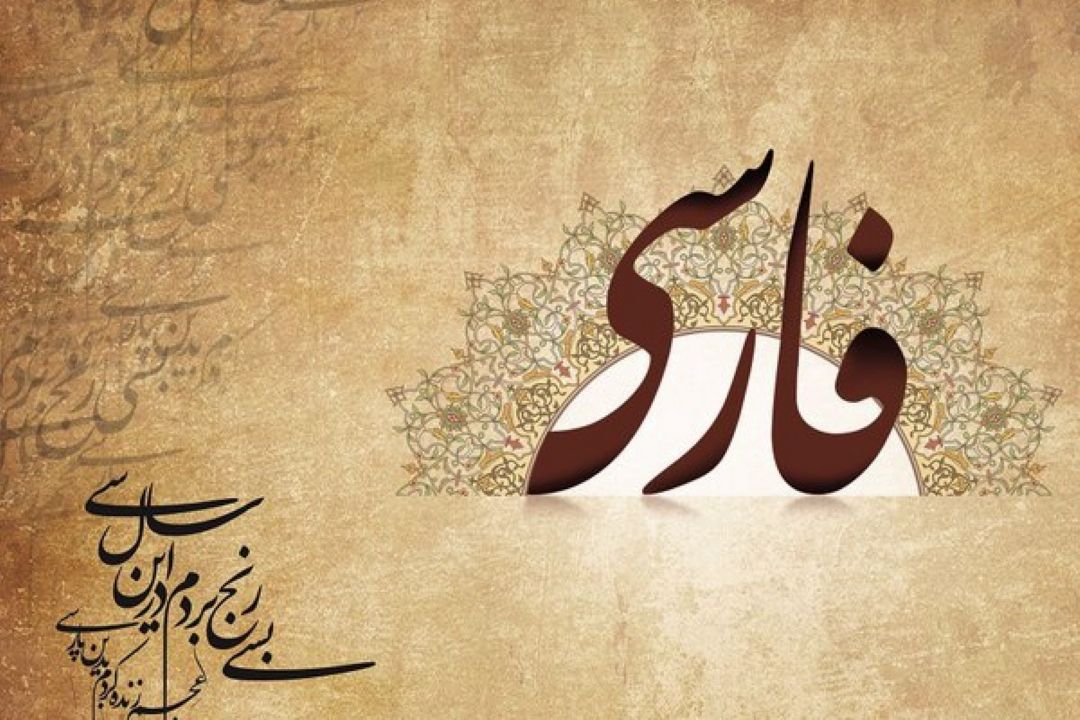 فارسی
بسی رنج بردم در این سال سی
عجم زنده کردم بدین پارسی